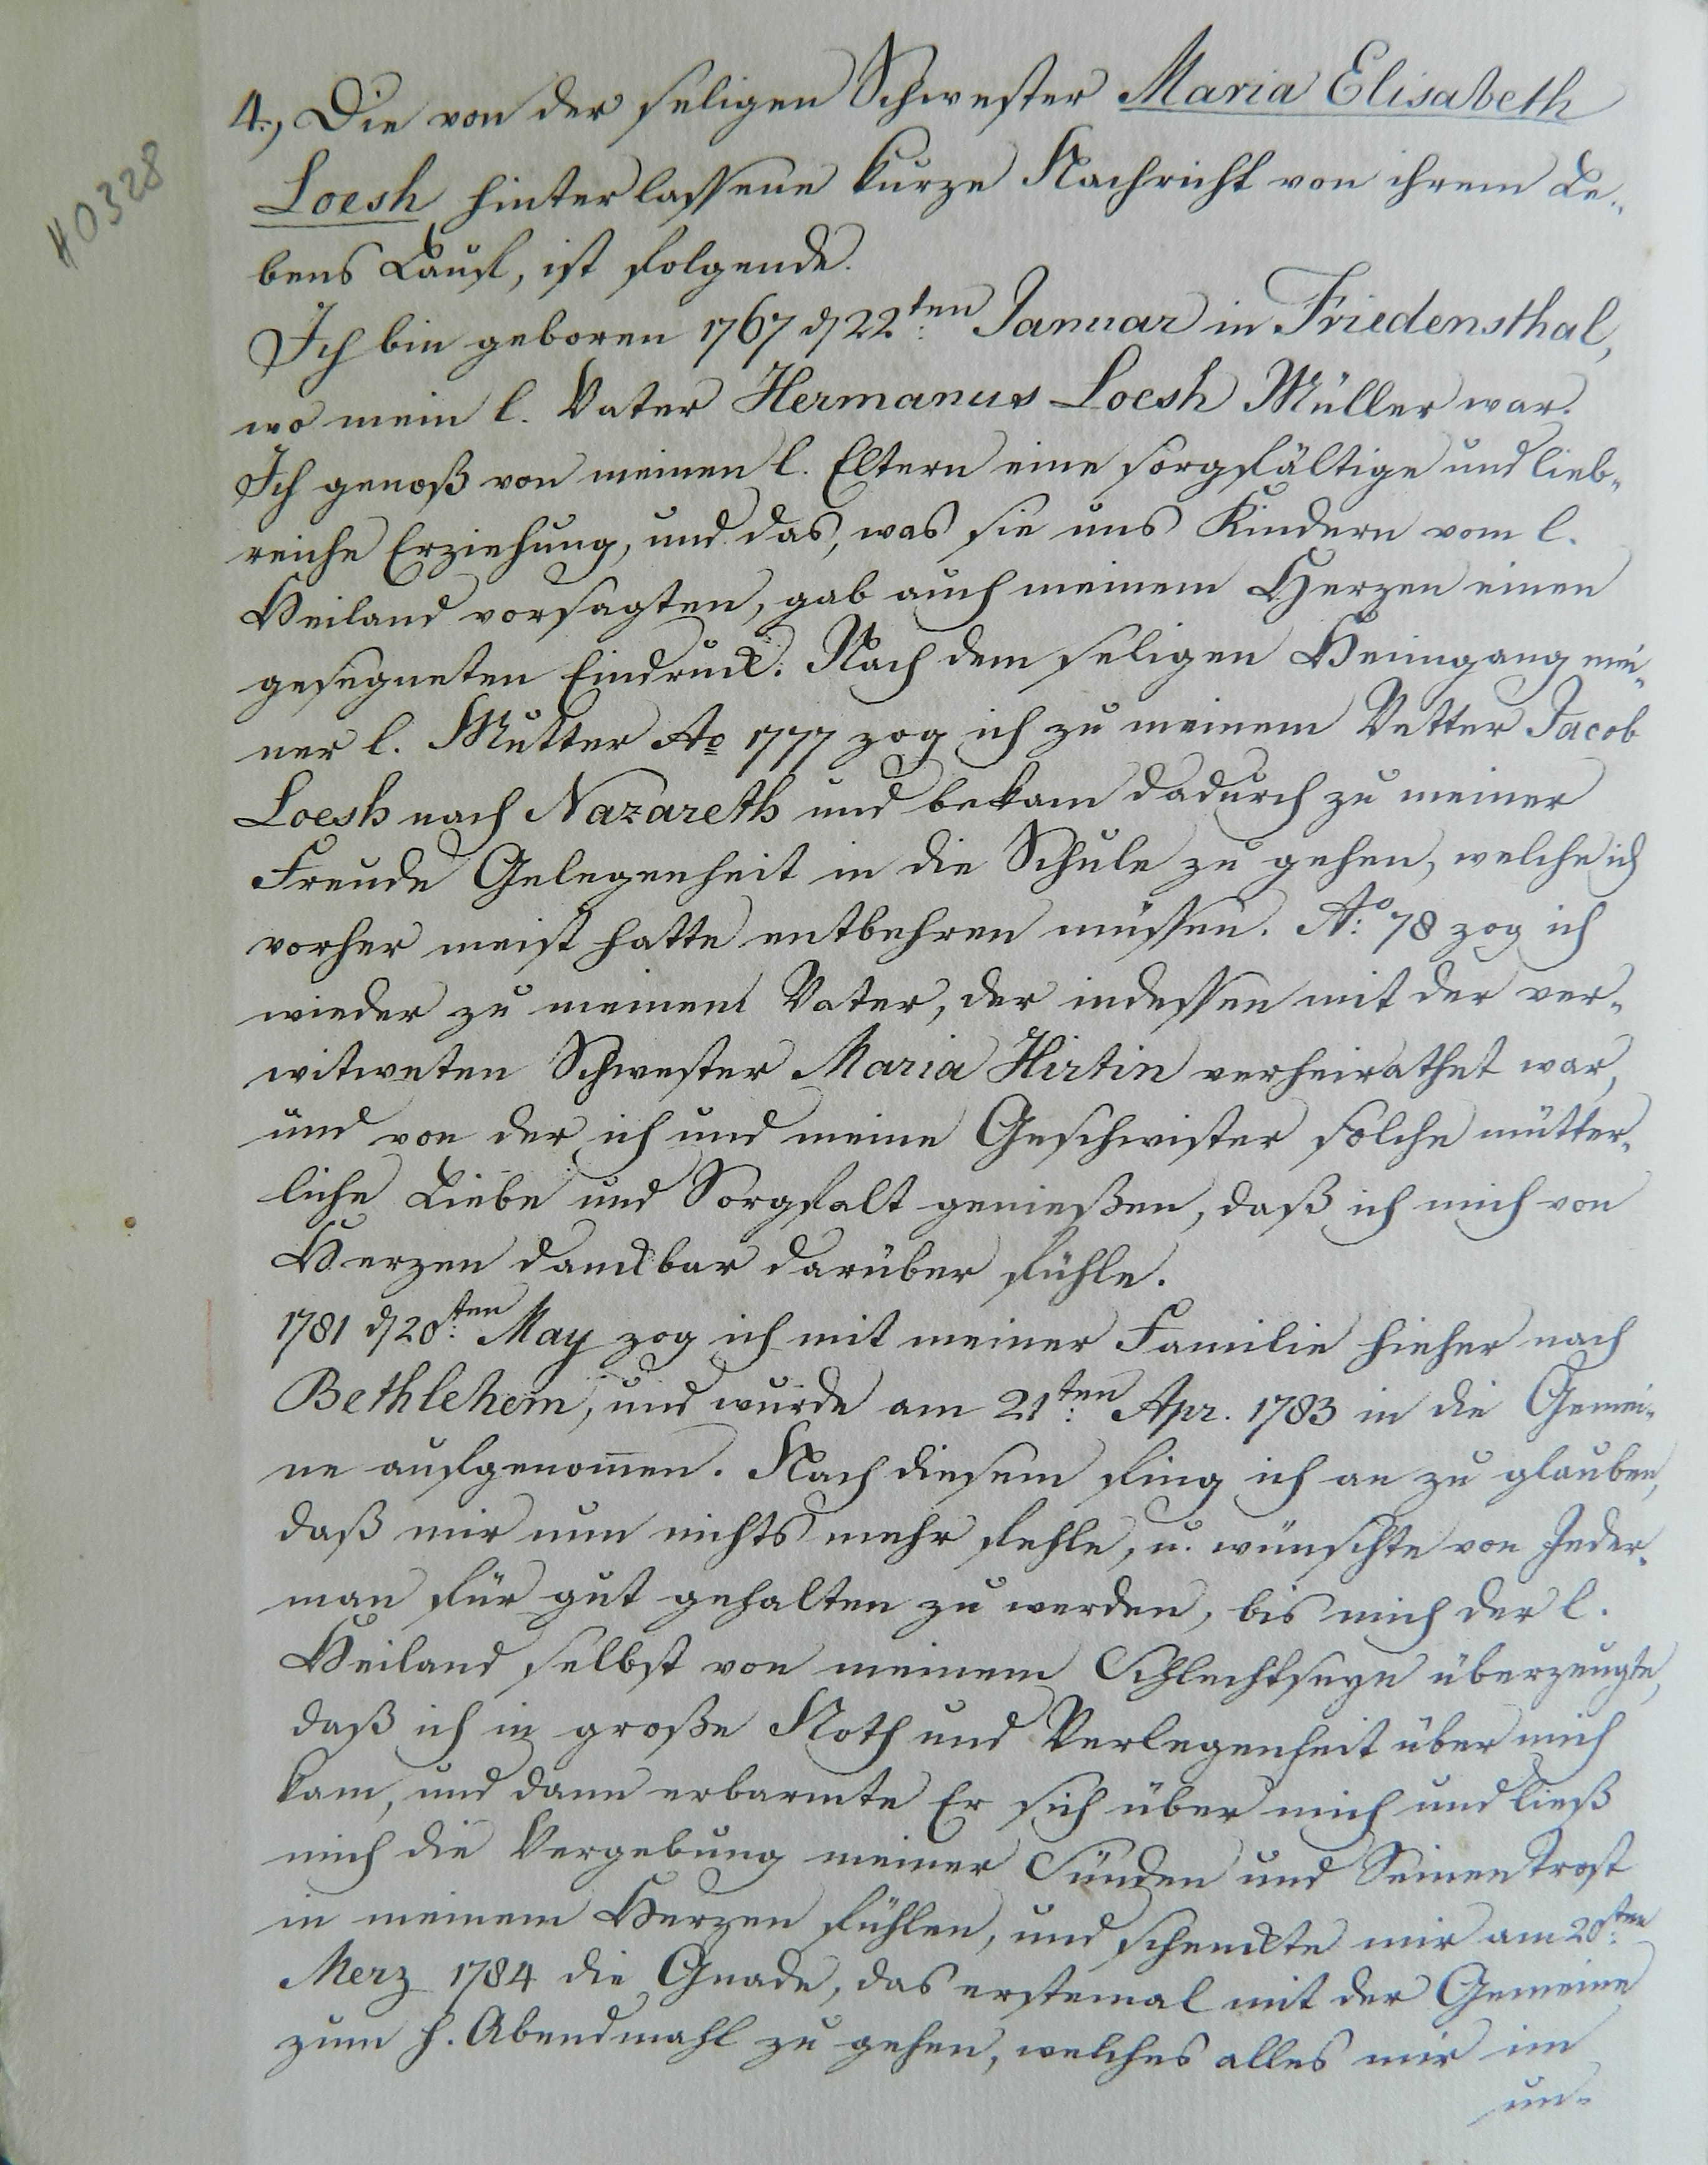 #0328
4., Die von der seligen Schwester Maria Elisabeth
Loesh hinterlassene kurze Nachricht von ihrem Le-
bens Lauf, ist folgende.
Ich bin geboren 1767 d 22ten Januar in Friedensthal,
wo mein l. Vater Hermanus Loesh Müller war.
Ich genoß von meinen l. Eltern eine sorgfältige und lieb-
reiche Erziehung, und das, was sie uns Kindern vom l.
Heiland vorsagten, gab auch meinem Herzen einen
gesegneten Eindruck. Nach dem seligen Heimgang mei-
ner l. Mutter Ao 1777 zog ich zu meinem Vetter Jacob
Loesh nach Nazareth und bekam dadurch zu meiner
Freude Gelegenheit in die Schule zu gehen, welche ich
vorher meist hatte entbehren müssen. Ao: 78 zog ich
wieder zu meinem Vater, der indessen mit der ver-
witweten Schwester Maria Hirtin verheirathet war,
und von der ich und meine Geschwister solche mütter-
liche Liebe und Sorgfalt genießen, daß ich mich von
Herzen danckbar darüber fühle.
1781 d 20ten: May zog ich mit meiner Familie hieher nach
Bethlehem, und wurde am 21ten: Apr. 1783 in die Gemei-
ne aufgenom̅en. Nach diesem fing ich an zu glauben,
daß mir nun nichts mehr fehle, u. wünschte von Jeder-
man für gut gehalten zu werden, bis mich der l.
Heiland selbst von meinem Schlechtseyn überzeugte,
daß ich in große Noth und Verlegenheit über mich
kam, und dann erbarmte Er sich über mich und ließ
mich die Vergebung meiner Sünden und Seinen Trost
in meinem Herzen fühlen, und schenckte mir am 20sten:
Merz 1784 die Gnade, das erstemal mit der Gemeine
zum h. Abendmahl zu gehen, welches alles mir im
un-